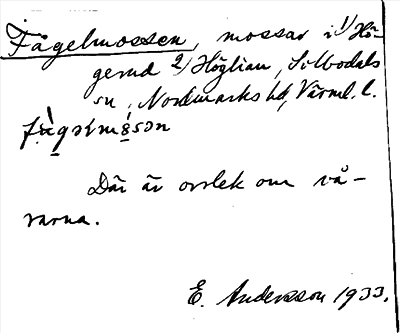 Fågelmossen, mossar i 1/ Hö-
gerud 2/ Höglian, Silbodals
sn, Nordmarks hd, Värml. l.
Där är orrlek om vå-
rarna.
E. Andersson 1933.